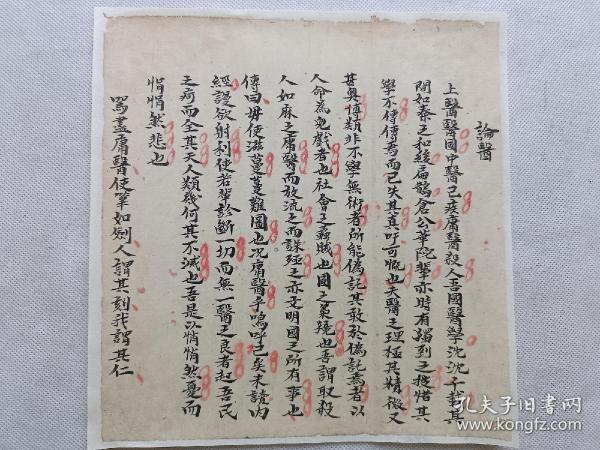 論醫
上醫醫國中醫已疾庸醫殺人吾國醫學沈沈千載其
間如秦之和緩扁鵲倉公華陀輩亦時有獨到之技惜其
學不傳傳焉而已失其真吁可慨也夫醫之理極其精微又
甚奧博類非不學無術者所能偽託其敢於偽託焉者以
人命為兒戲者也社會之蟊賊也國之梟獍也吾謂取殺
人如麻之庸醫而放流之而誅殛之亦文明國之所有事也
傳曰毋使滋蔓蔓難圖也况庸醫乎嗚呼已矣未讀內
經謾欲射利使若輩診斷一切而無一醫之良者起吾民
之疴而全其天人類幾何其不滅也吾是以悄悄然憂而
悁悁然悲也
罵盡庸醫使筆如劍人謂其刻我謂其仁
孔夫子旧书网
www.kongfz.com